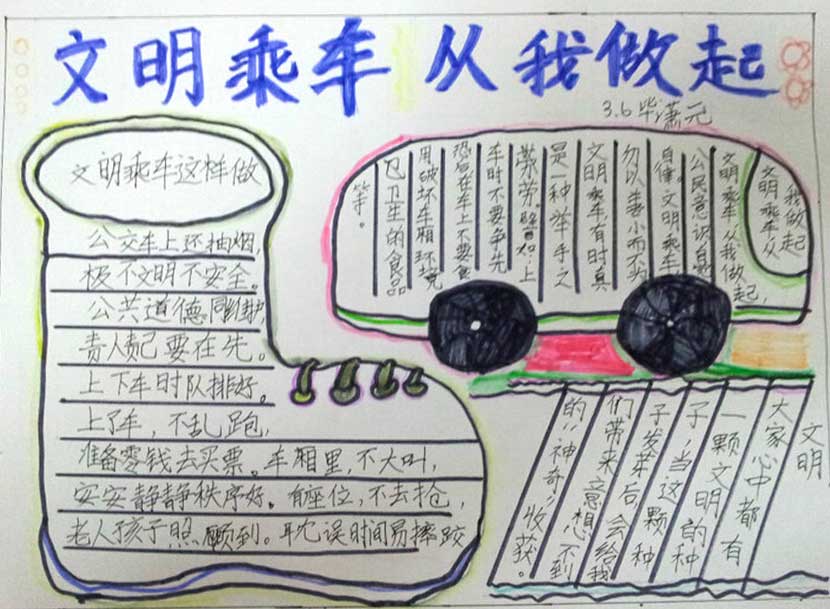 文明乘车 从我做起
3.6 毕潇元
文明乘车这样做
公交车上还抽烟,
极不文明不安全。
公共道德同维护
责人责己要在先。
上下车时队排好。
上了车,不乱跑,
准备零钱去买票。车厢里,不大叫,
安安静静秩序好。有座位,不去抢,
老人孩子照顾到。耽误时间易摔跤
我做起
文明乘车从
文明乘车从我做起,
公民意识自觉
自律。文明乘车
勿以善小而不为
文明乘车,有时真
是一种举手之
劳劳。譬如:上
车时不要争先
恐后在车上不要食
用破坏车厢环境
卫生的食品
等。
文明
大家心中都有
一颗文明的种
子,当这颗种
子发芽后,会给我
们带来意想不到
的“神奇”收获。